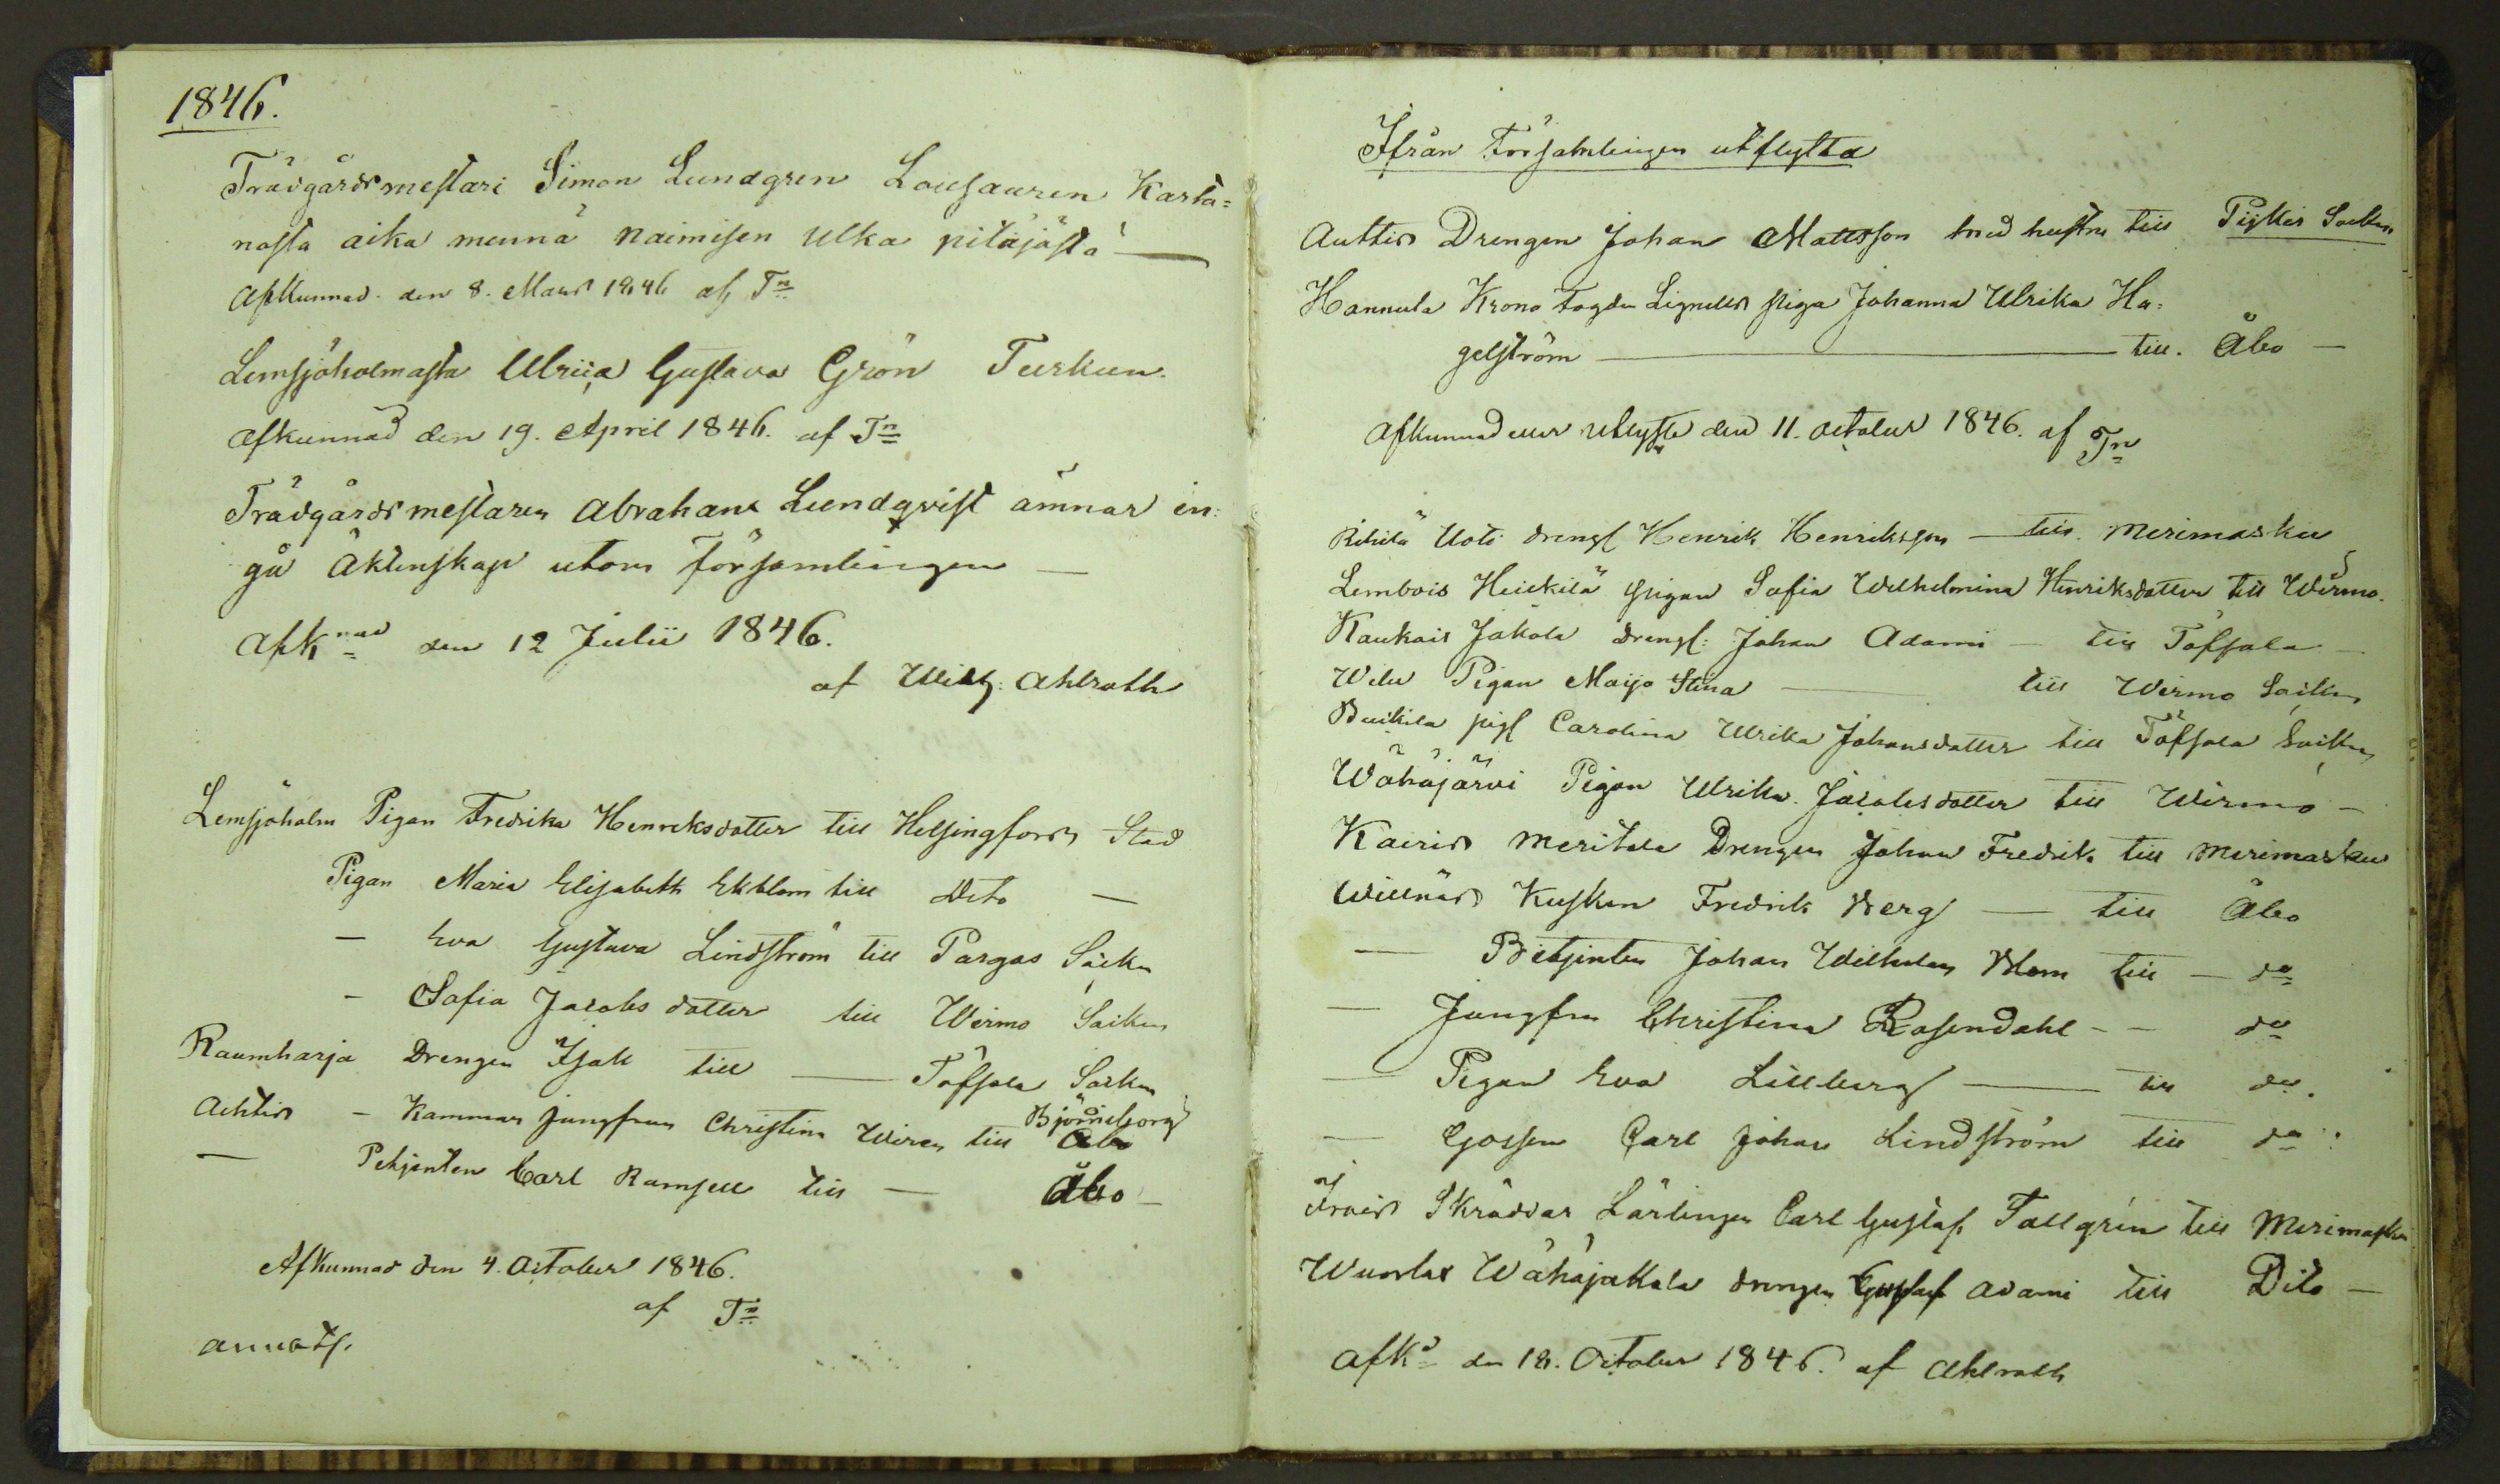 1846.
Trädgårdsmestari Simon Lundgren Lousauren Karta=
nosta aika mennä naimisen Ulka pitäjästä —
Afkunnad den 8. Mars 1846 af Tn
Lemsjöholmasta Ulriia Gustava Grön Turkun.
Afkunnad den 19. April 1846. af Tn
Trädgårdsmestaren Abraham Lundqvist ämnar in=
gå Äktenskap utom församlingen —
Afknad den 12 Julii 1846.
af Wilh: Ahlroth
Lemsjöholm Pigan Fredrika Henriksdotter till Helsingfors Stad
Pigan Maria Elisabeth Ekblom till Dito —
— Eva Gustava Lindström till Pargas Säcken
— Sofia Jacobsdotter till Wirmo Säcken
Raumharja Drengen Isak till — Töfsala Säcken
Björneborg
Achtis — Kammar jungfrun Christina Wiren till Åbo
— Petjenten Carl Ramsell till — Åbo —
Afkunnad den 4. October 1846.
af Tn
Ifrån Församlingen utflytta
Anttis Drengen Johan Mattsson med hustru till Pijkis Socken
Hannula Krono Fogden Lignells piga Johanna Ulrika Ha=
gelström — till. Åbo —
Afkunnad eller utlyste den 11. October 1846. af Tn
Rikilä Uoti drengs Henrik Henriksson — till Merimasku
Lembois Heickilä pigan Sofia Wilhelmina Henriksdotter till Wirmo.
Kaukais Jakola drengs: Johan Adami — till Töfsala —
Wilu Pigan Maija Stina — till Wirmo Säcken
Buikila pigs Carolina Ulrika Johansdotter till Töfsala Säcken
Wähäjärvi Pigan Ulrika Jacobsdotter till Wirmo —
Kairis Meritala Drengen Johan Fredrik till Merimasku
Willnäs Kusken Fredrik Berg — till Åbo
— Betjenten Johan Wilhelm Blom till — do
— Jungfru Christina Rosendahl — — do
— Pigan Eva Lillberg — till do.
— Gossen Carl Johan Lindström till do.
Skräddar Lärlingen Carl Gustaf Tallgrin till Merimasku
Wuorlax Wähäjakala drengen Gustaf Adami till Dito —
Afkd den 18. October 1846. af Ahlroth